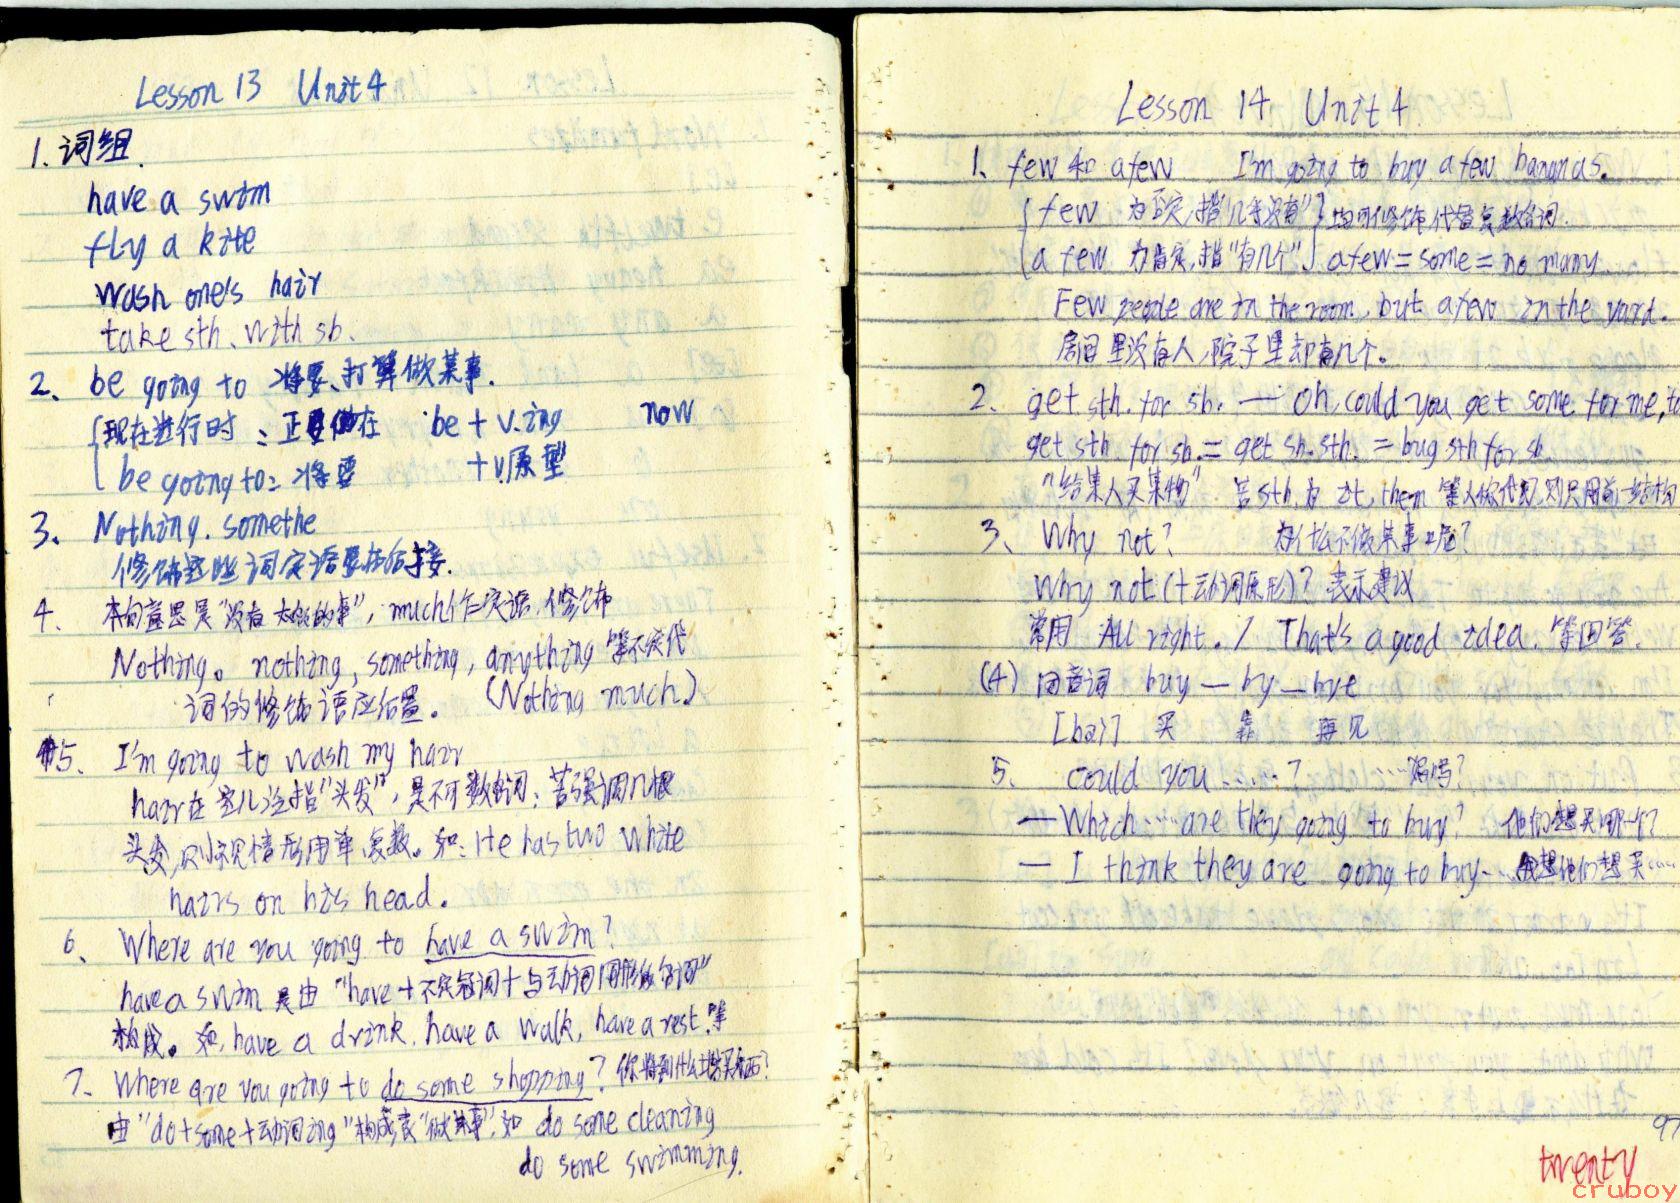 Lesson 13 Unit 4
1. 词组.
have a swim
fly a kite
wash one's hair
take sth. with sb.
2. be going to 将要、打算做某事.
现在进行时: 正在 be + v.ing now
be going to: 将要 + v.原型
3. Nothing. somethe
修饰这些词定语要在后接.
4. 本句意思是"没有太多的事", much作定语, 修饰
Nothing。nothing, something, anything 等不定代
词的修饰语应后置。(Nothing much.)
5. I'm going to wash my hair
hair在这儿泛指"头发", 是不可数名词; 若强调几根
头发, 则视情形用单、复数。如: He has two white
hairs on his head.
6. Where are you going to have a swim?
have a swim 是由 "have + 不定冠词 + 与动词同形的名词"
构成。如, have a drink, have a walk, have a rest. 等
7. Where are you going to do some shopping? 你将到什么地方买东西?
由 "do + some + 动词ing" 构成表"做某事", 如 do some cleaning
do some swimming.
Lesson 14 Unit 4
1. few 和 a few I'm going to buy a few bananas.
few 为否定, 指"几乎没有" 均可修饰代替复数名词.
a few 为肯定, 指"有几个" a few = some = no many
Few people are in the room, but a few in the yard.
房间里没有人, 院子里却有几个。
2. get sth. for sb. — Oh, could you get some for me, to
get sth for sb. = get sb. sth. = bug sth for sb
"给某人买某物". 若sth. 为 it, them 等人称代词, 则只用前一结构
3. Why not? 为什么不做某事呢?
Why not (+动词原形)? 表示建议
常用 All right. / That's a good idea. 等回答.
(4) 同音词 buy — by — bye
[bai] 买 靠 再见
5. could you ......? ......吗?
— Which ... are they going to buy? 他们想买哪一个?
— I think they are going to buy... 我想他们想买......
97
twenty
cruboy